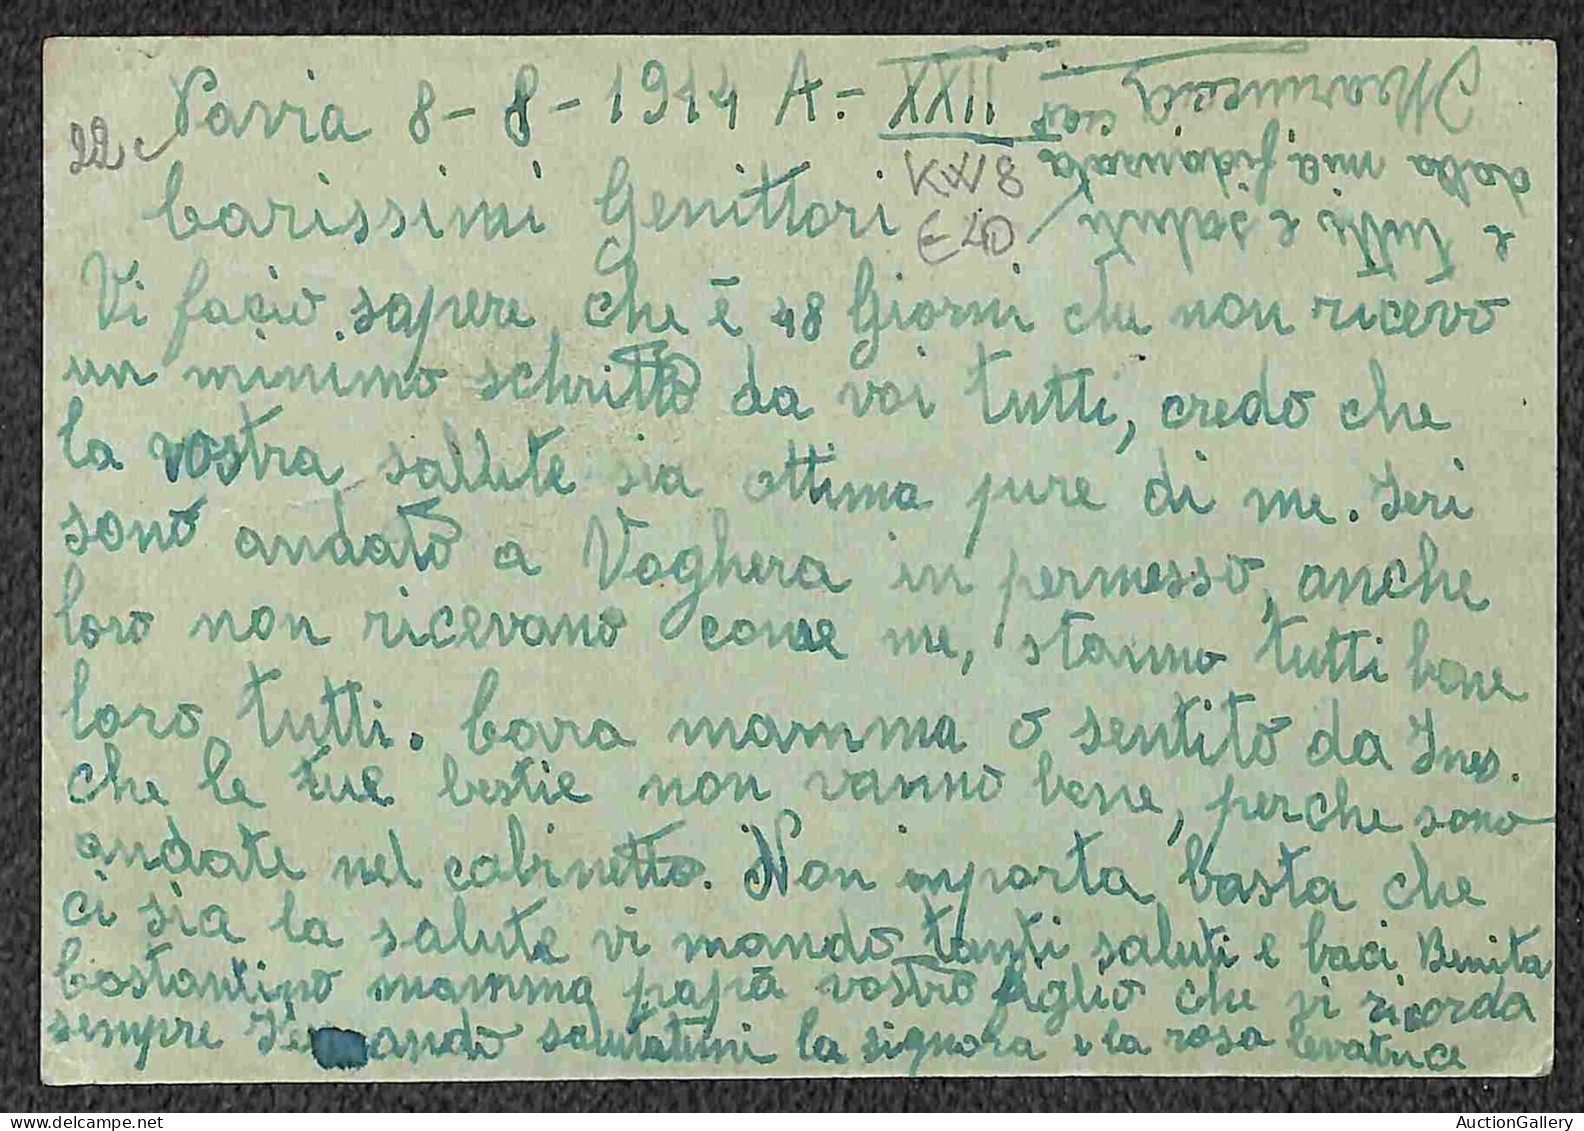 Pavia 8-8-1944 A.- XXII
22
KW 8
E 40
Carissimi Genittori
Vi facio sapere che è 48 Giorni che non ricevo
un minimo schritto da voi tutti, credo che
la vostra sallute sia ottima pure di me. Ieri
sono andato a Voghera in permesso, anche
loro non ricevano come me, stanno tutti bene
loro tutti. Cara mamma o sentito da Ines.
che le tue bestie non vanno bene, perche sono
andate nel cabinetto. Non inporta basta che
ci sia la salute vi mando tanti saluti e baci Benita
Costantino mamma papà vostro figlio che vi ricorda
sempre salutatimi la signora e la rosa levatrice
e tutti e saluti
dalla mia fidanzata
AuctionGallery